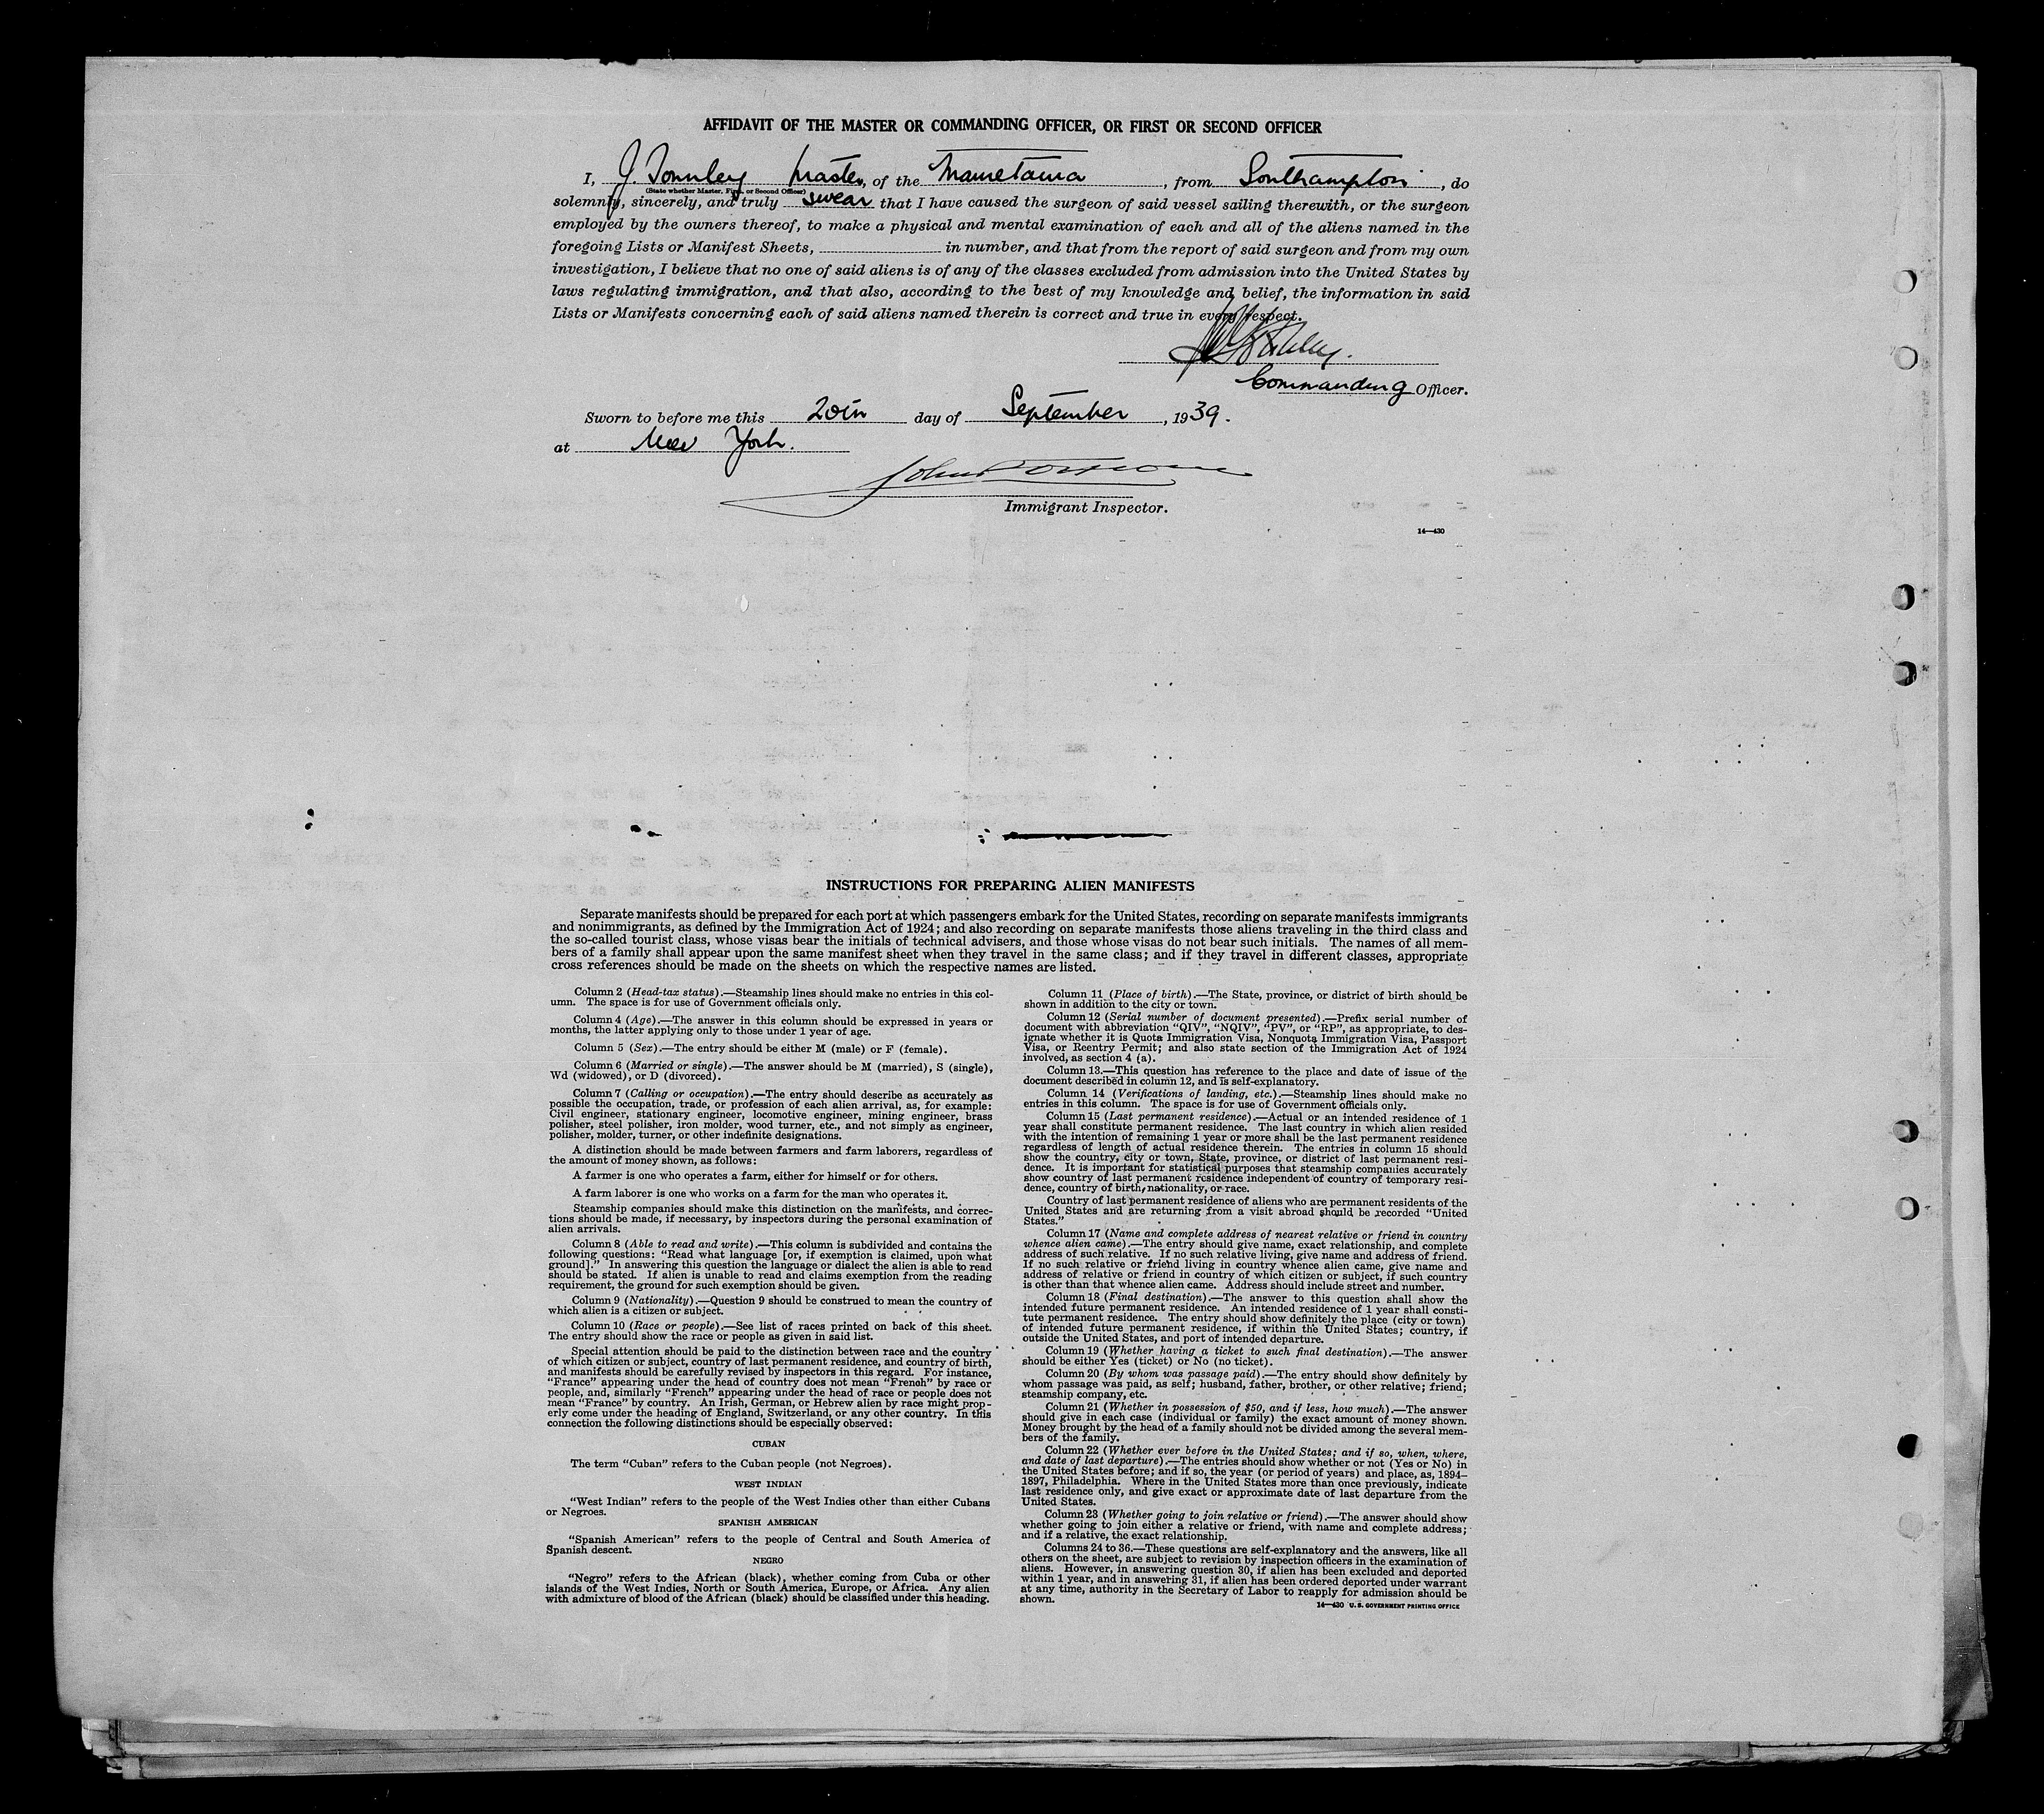 AFFIDAVIT OF THE MASTER OR COMMANDING OFFICER, OR FIRST OR SECOND OFFICER
I, J. Townley Master, of the Mauretania, from Southampton, do
(State whether Master, First, or Second Officer)
solemnly, sincerely, and truly swear that I have caused the surgeon of said vessel sailing therewith, or the surgeon
employed by the owners thereof, to make a physical and mental examination of each and all of the aliens named in the
foregoing Lists or Manifest Sheets, in number, and that from the report of said surgeon and from my own
investigation, I believe that no one of said aliens is of any of the classes excluded from admission into the United States by
laws regulating immigration, and that also, according to the best of my knowledge and belief, the information in said
Lists or Manifests concerning each of said aliens named therein is correct and true in every respect.
Commanding Officer.
Sworn to before me this 20th day of September, 1939.
at New York.
John
Immigrant Inspector.
14—430
INSTRUCTIONS FOR PREPARING ALIEN MANIFESTS
Separate manifests should be prepared for each port at which passengers embark for the United States, recording on separate manifests immigrants
and nonimmigrants, as defined by the Immigration Act of 1924; and also recording on separate manifests those aliens traveling in the third class and
the so-called tourist class, whose visas bear the initials of technical advisers, and those whose visas do not bear such initials. The names of all mem-
bers of a family shall appear upon the same manifest sheet when they travel in the same class; and if they travel in different classes, appropriate
cross references should be made on the sheets on which the respective names are listed.
Column 2 (Head-tax status).—Steamship lines should make no entries in this col-
umn. The space is for use of Government officials only.
Column 4 (Age).—The answer in this column should be expressed in years or
months, the latter applying only to those under 1 year of age.
Column 5 (Sex).—The entry should be either M (male) or F (female).
Column 6 (Married or single).—The answer should be M (married), S (single),
Wd (widowed), or D (divorced).
Column 7 (Calling or occupation).—The entry should describe as accurately as
possible the occupation, trade, or profession of each alien arrival, as, for example:
Civil engineer, stationary engineer, locomotive engineer, mining engineer, brass
polisher, steel polisher, iron molder, wood turner, etc., and not simply as engineer,
polisher, molder, turner, or other indefinite designations.
A distinction should be made between farmers and farm laborers, regardless of
the amount of money shown, as follows:
A farmer is one who operates a farm, either for himself or for others.
A farm laborer is one who works on a farm for the man who operates it.
Steamship companies should make this distinction on the manifests, and correc-
tions should be made, if necessary, by inspectors during the personal examination of
alien arrivals.
Column 8 (Able to read and write).—This column is subdivided and contains the
following questions: “Read what language [or, if exemption is claimed, upon what
ground].” In answering this question the language or dialect the alien is able to read
should be stated. If alien is unable to read and claims exemption from the reading
requirement, the ground for such exemption should be given.
Column 9 (Nationality).—Question 9 should be construed to mean the country of
which alien is a citizen or subject.
Column 10 (Race or people).—See list of races printed on back of this sheet.
The entry should show the race or people as given in said list.
Special attention should be paid to the distinction between race and the country
of which citizen or subject, country of last permanent residence, and country of birth,
and manifests should be carefully revised by inspectors in this regard. For instance,
“France” appearing under the head of country does not mean “French” by race or
people, and, similarly “French” appearing under the head of race or people does not
mean “France” by country. An Irish, German, or Hebrew alien by race might prop-
erly come under the heading of England, Switzerland, or any other country. In this
connection the following distinctions should be especially observed:
CUBAN
The term “Cuban” refers to the Cuban people (not Negroes).
WEST INDIAN
“West Indian” refers to the people of the West Indies other than either Cubans
or Negroes.
SPANISH AMERICAN
“Spanish American” refers to the people of Central and South America of
Spanish descent.
NEGRO
“Negro” refers to the African (black), whether coming from Cuba or other
islands of the West Indies, North or South America, Europe, or Africa. Any alien
with admixture of blood of the African (black) should be classified under this heading.
Column 11 (Place of birth).—The State, province, or district of birth should be
shown in addition to the city or town.
Column 12 (Serial number of document presented).—Prefix serial number of
document with abbreviation “QIV”, “NQIV”, “PV”, or “RP”, as appropriate, to des-
ignate whether it is Quota Immigration Visa, Nonquota Immigration Visa, Passport
Visa, or Reentry Permit; and also state section of the Immigration Act of 1924
involved, as section 4 (a).
Column 13.—This question has reference to the place and date of issue of the
document described in column 12, and is self-explanatory.
Column 14 (Verifications of landing, etc.).—Steamship lines should make no
entries in this column. The space is for use of Government officials only.
Column 15 (Last permanent residence).—Actual or an intended residence of 1
year shall constitute permanent residence. The last country in which alien resided
with the intention of remaining 1 year or more shall be the last permanent residence
regardless of length of actual residence therein. The entries in column 15 should
show the country, city or town, State, province, or district of last permanent resi-
dence. It is important for statistical purposes that steamship companies accurately
show country of last permanent residence independent of country of temporary resi-
dence, country of birth, nationality, or race.
Country of last permanent residence of aliens who are permanent residents of the
United States and are returning from a visit abroad should be recorded “United
States.”
Column 17 (Name and complete address of nearest relative or friend in country
whence alien came).—The entry should give name, exact relationship, and complete
address of such relative. If no such relative living, give name and address of friend.
If no such relative or friend living in country whence alien came, give name and
address of relative or friend in country of which citizen or subject, if such country
is other than that whence alien came. Address should include street and number.
Column 18 (Final destination).—The answer to this question shall show the
intended future permanent residence. An intended residence of 1 year shall consti-
tute permanent residence. The entry should show definitely the place (city or town)
of intended future permanent residence, if within the United States; country, if
outside the United States, and port of intended departure.
Column 19 (Whether having a ticket to such final destination).—The answer
should be either Yes (ticket) or No (no ticket).
Column 20 (By whom was passage paid).—The entry should show definitely by
whom passage was paid, as self; husband, father, brother, or other relative; friend;
steamship company, etc.
Column 21 (Whether in possession of $50, and if less, how much).—The answer
should give in each case (individual or family) the exact amount of money shown.
Money brought by the head of a family should not be divided among the several mem-
bers of the family.
Column 22 (Whether ever before in the United States; and if so, when, where,
and date of last departure).—The entries should show whether or not (Yes or No) in
the United States before; and if so, the year (or period of years) and place, as, 1894–
1897, Philadelphia. Where in the United States more than once previously, indicate
last residence only, and give exact or approximate date of last departure from the
United States.
Column 23 (Whether going to join relative or friend).—The answer should show
whether going to join either a relative or friend, with name and complete address;
and if a relative, the exact relationship.
Columns 24 to 36.—These questions are self-explanatory and the answers, like all
others on the sheet, are subject to revision by inspection officers in the examination of
aliens. However, in answering question 30, if alien has been excluded and deported
within 1 year, and in answering 31, if alien has been ordered deported under warrant
at any time, authority in the Secretary of Labor to reapply for admission should be
shown.
14—430 U. S. GOVERNMENT PRINTING OFFICE